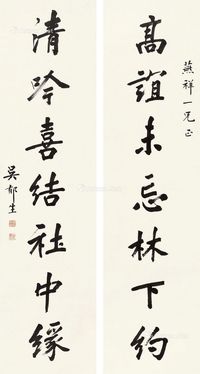 燕祥一兄正
高誼未忘林下約
清吟喜結社中緣
吳郁生